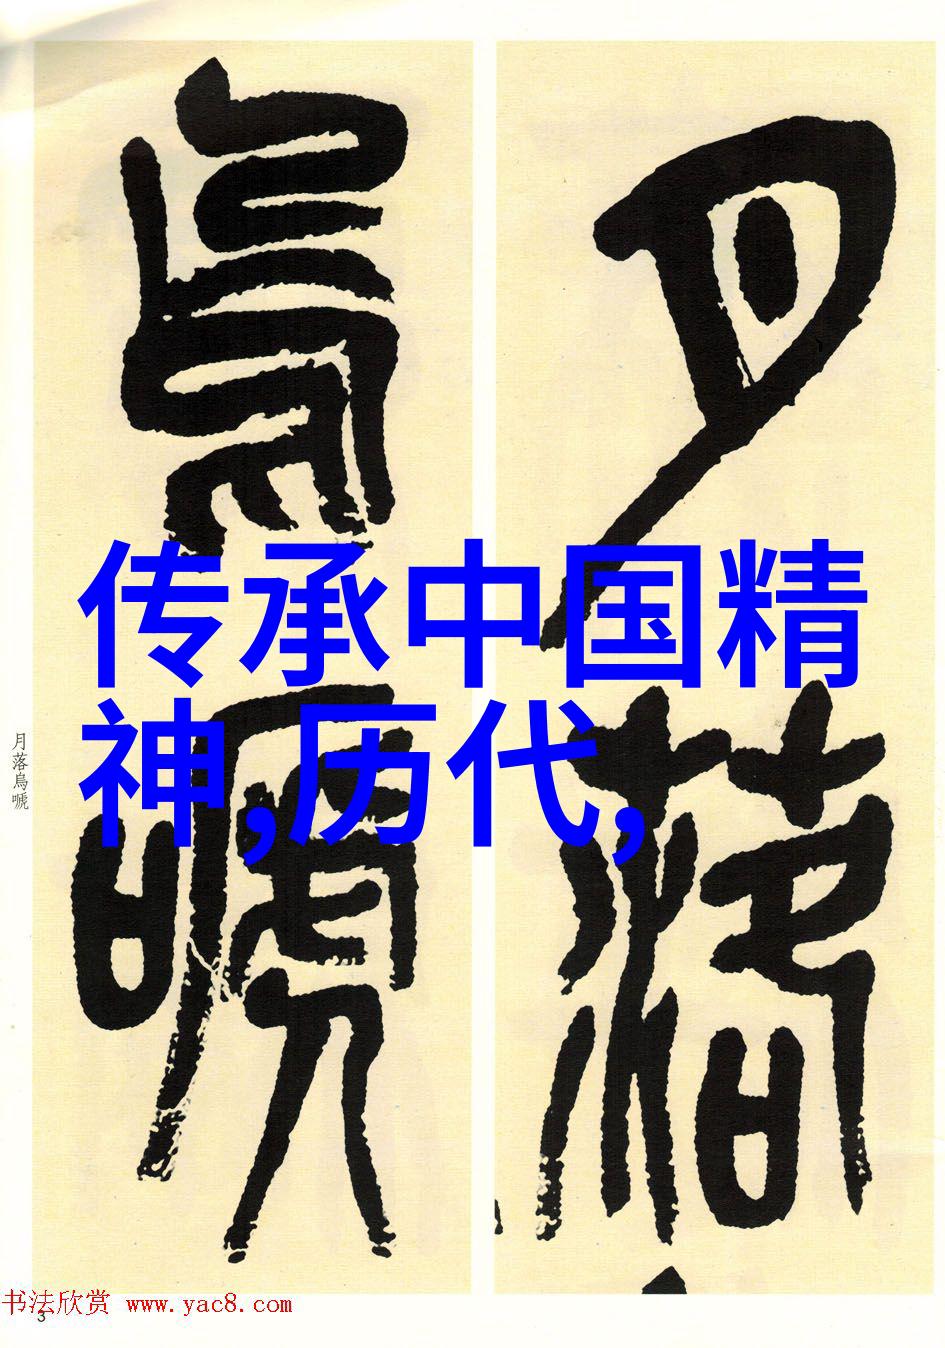 月落
烏嗁
传承中国精
神,历代,
月落烏嗁
书法欣赏 www.yac8.com
3